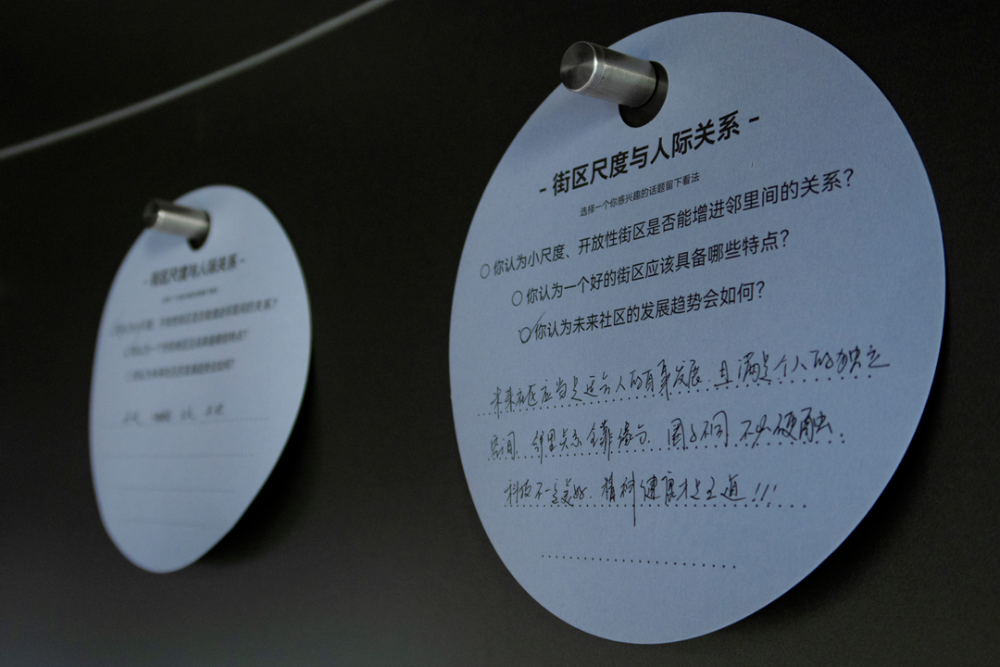 - 街区尺度与人际关系 -
选择一个你感兴趣的话题留下看法
你认为小尺度、开放性街区是否能增进邻里间的关系?
你认为一个好的街区应该具备哪些特点?
你认为未来社区的发展趋势会如何?
未来社区应当是适合人的自身发展.且满足个人的独立
空间.邻里关系全靠缘分.圈子不同 不必硬融.
科技不一定美好.精神健康才是王道!!!
- 街区尺度与人际关系 -